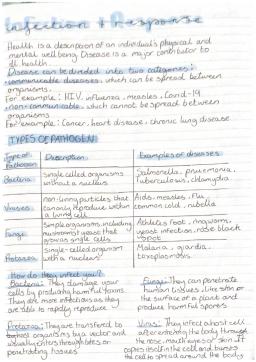 Infection & Response
Health is a description of an individual's physical and
mental well being. Disease is a major contributor to
ill health.
Disease can be divided into two categories:
communicable diseases, which can be spread between
organisms.
For example: HIV, influenza, measles, Covid-19
non-communicable, which cannot be spread between
organisms
For example: Cancer, heart disease, chronic lung disease
TYPES OF PATHOGEN
Type of Pathogen Description Examples of diseases
Bacteria Single celled organisms without a nucleus Salmonella, pneumonia, Tuberculosis, chlamydia
Viruses non-living particles that can only reproduce within a living cell Aids, measles, Flu, common cold, rubella
Fungi Simple organisms, including mushrooms, yeast that grow as single cells Athletes foot, ringworm, yeast infection, rose black spot
Protozoa Single-celled organism with a nucleus Malaria, giardia, toxoplasmosis
How do they infect you?
Bacteria: They damage your
cells by producing harmful toxins.
They are more infectious as they
are able to rapidly reproduce
Protozoa: They are transferred to
other organisms by a vector and
usually enters through bites or
penetrating tissues
Fungi: They can penetrate
human tissues, like skin or
the surface of a plant and
produce harmful spores
Virus: They infect a host cell
after entering the body through
the nose, mouth, eyes or skin. It
copies itself in the cell and bursts
the cell to spread around the body